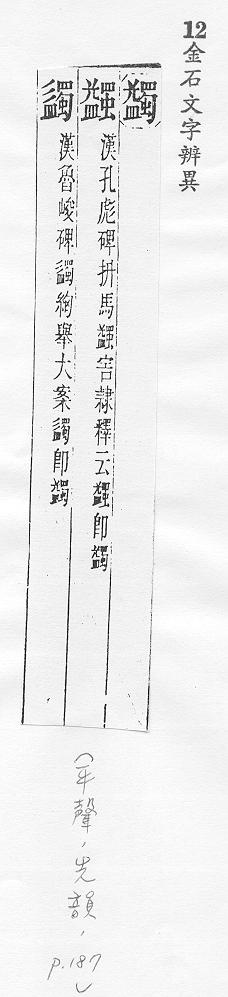 12金石文字辨異
蠲
漢孔彪碑拼馬害隸釋云即蠲
漢魯峻碑細舉大案即蠲
(平聲,先韻,p.187)